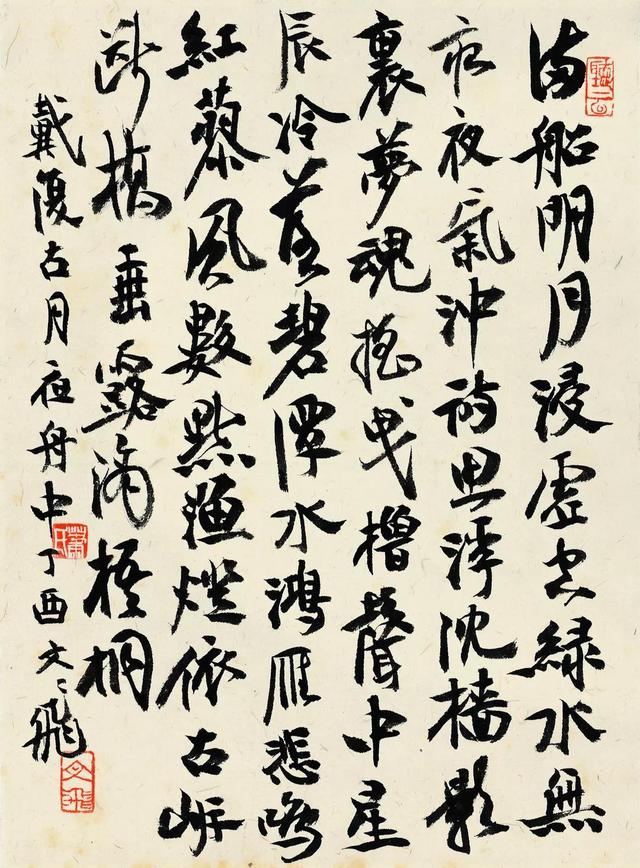 滿船明月浸虛空綠水無
痕夜氣沖詩思浮沈檣影
裏夢魂搖曳櫓聲中星
辰冷落碧潭水鴻雁悲鳴
紅蓼風數點漁燈依古岸
斷橋垂露滴梧桐
戴復古月夜舟中丁酉文飛